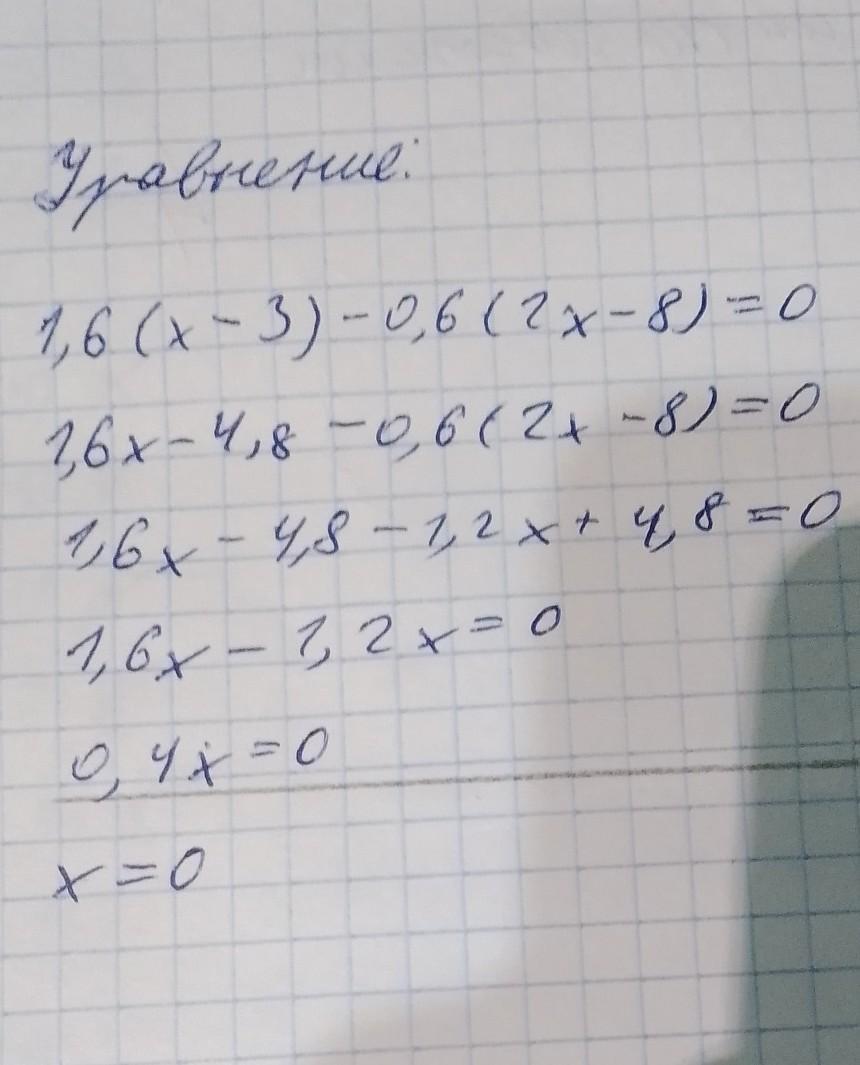 Уравнение:
1,6(x-3)-0,6(2x-8)=0
1,6x-4,8-0,6(2x-8)=0
1,6x-4,8-1,2x+4,8=0
1,6x-1,2x=0
0,4x=0
x=0